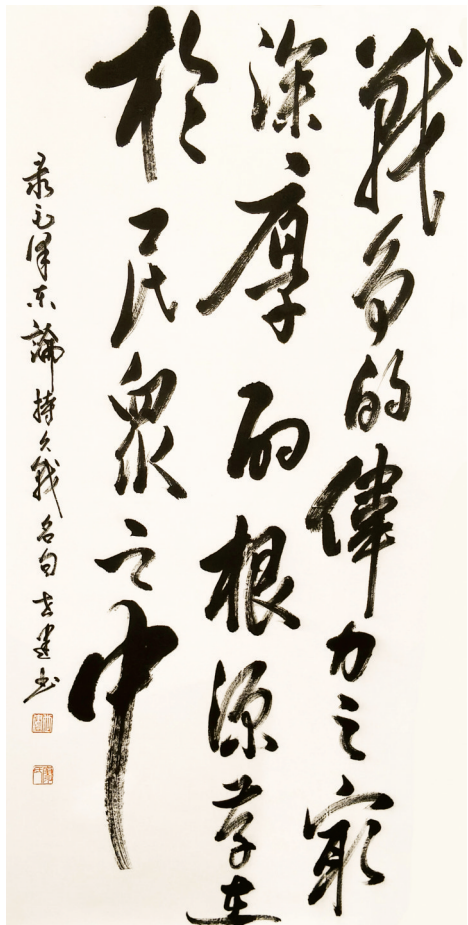 戰爭的偉力之最
深厚的根源存在
於民眾之中
录毛澤东論持久戰名句书